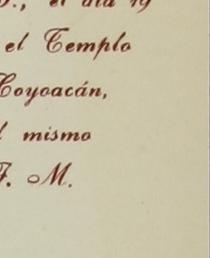 ., el día 19
el Templo
Coyoacán,
l mismo
F. M.